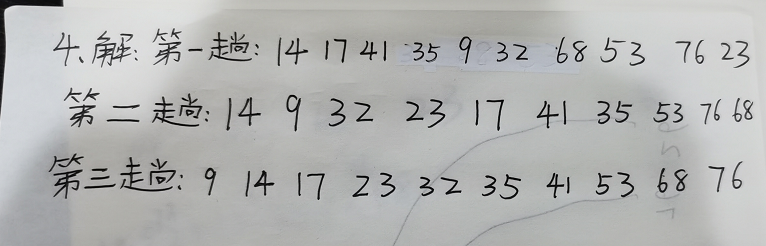 4、解: 第一趟: 14 17 41 35 9 32 68 53 76 23
第二趟: 14 9 32 23 17 41 35 53 76 68
第三趟: 9 14 17 23 32 35 41 53 68 76